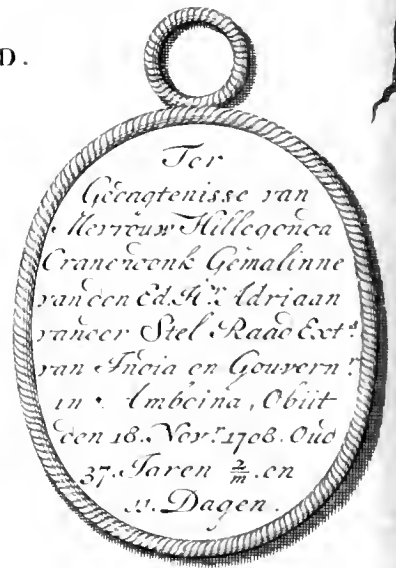 D.
Ter
Gedagtenisse van
Mevrouw Hillegonda
Cranendonk Gemalinne
van den Ed. Hr. Adriaan
vander Stel Raad Exts.
van India en Gouvernr.
in Amboina, Obiit
den 18. Novr. 1708. Oud
37. Jaren 2/m. en
11. Dagen.